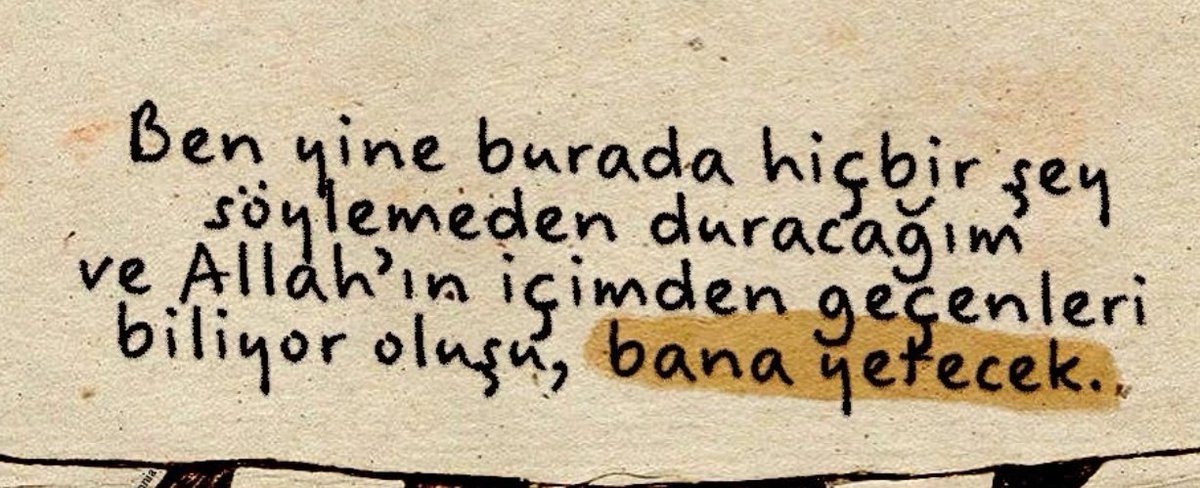 Ben yine burada hiçbir şey
söylemeden duracağım
ve Allah'ın içimden geçenleri
biliyor oluşu, bana yetecek.